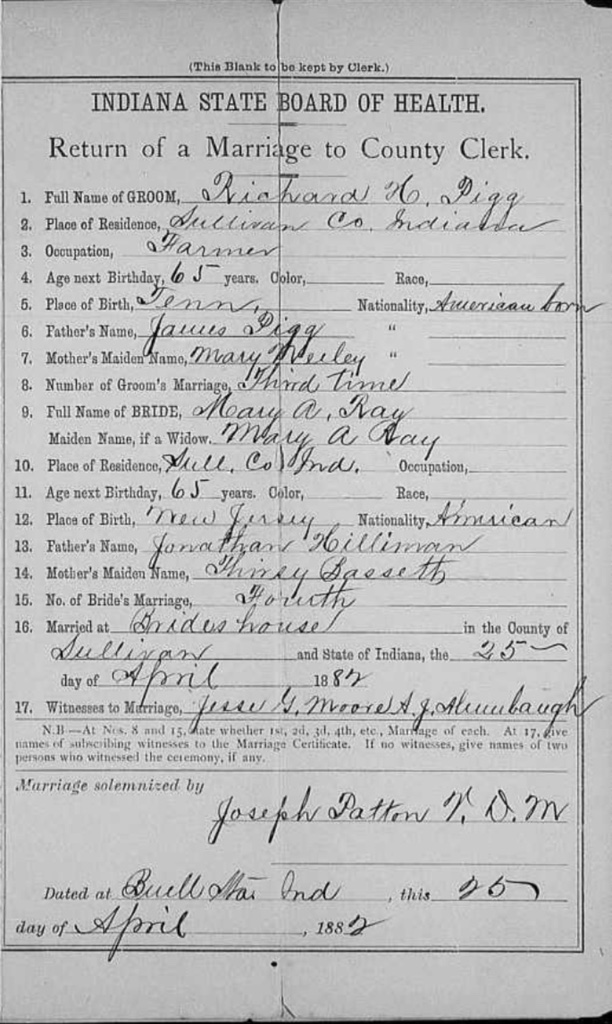 (This Blank to be kept by Clerk.)
INDIANA STATE BOARD OF HEALTH.
Return of a Marriage to County Clerk.
1. Full Name of GROOM, Richard H. Pigg
2. Place of Residence, Sullivan Co. Indiana
3. Occupation, Farmer
4. Age next Birthday, 65 years. Color, Race,
5. Place of Birth, Tenn, Nationality, American born
6. Father's Name, James Pigg "
7. Mother's Maiden Name, Mary "
8. Number of Groom's Marriage, Third time
9. Full Name of BRIDE, Mary A, Ray
Maiden Name, if a Widow. Mary A Ray
10. Place of Residence, Sull. Co Ind. Occupation,
11. Age next Birthday, 65 years. Color, Race,
12. Place of Birth, New Jersey Nationality, American
13. Father's Name, Jonathan Hilliman
14. Mother's Maiden Name, Bassett
15. No. of Bride's Marriage, Fourth
16. Married at Brides house in the County of
Sullivan and State of Indiana, the 25
day of April 1882
17. Witnesses to Marriage, Jesse G. Moore A. J.
N.B—At Nos. 8 and 15, state whether 1st, 2d, 3d, 4th, etc., Marriage of each. At 17, give
names of subscribing witnesses to the Marriage Certificate. If no witnesses, give names of two
persons who witnessed the ceremony, if any.
Marriage solemnized by
Joseph Patton V. D. M
Dated at Buell Ind, this 25
day of April, 1882